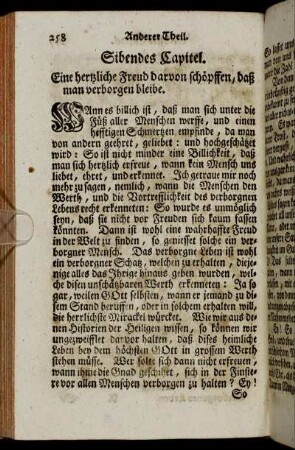 258 Anderer Theil.
Sibendes Capitel.
Eine hertzliche Freud darvon schöpffen, daß
man verborgen bleibe.
WAnn es billich ist, daß man sich unter die
Füß aller Menschen werffe, und einen
hefftigen Schmertzen empfinde, da man
von andern geehret, geliebt: und hochgeschätzet
wird: So ist nicht minder eine Billichkeit, daß
man sich hertzlich erfreut, wann kein Mensch uns
liebet, ehret, und erkennet. Ich getraue mir noch
mehr zu sagen, nemlich, wann die Menschen den
Werth, und die Vortrefflichkeit des verborgnen
Lebens recht erkenneten: So wurde es unmöglich
seyn, daß sie nicht vor Freuden sich kaum fassen
könnten. Dann ist wohl eine wahrhaffte Freud
in der Welt zu finden, so geniesset solche ein ver-
borgner Mensch. Das verborgne Leben ist wohl
ein verborgner Schatz, welchen zu erhalten, dieje-
nige alles das Jhrige hinaus geben wurden, wel-
che disen unschätzbaren Werth erkenneten: Ja so
gar, weilen GOtt selbsten, wann er jemand zu di-
sem Stand beruffen, oder in solchem erhalten will,
die herrlichste Mirackel würcket. Wie wir aus de-
nen Historien der Heiligen wissen, so können wir
ungezweifflet darvor halten, daß dises heimliche
Leben bey dem höchsten GOtt in grossem Werth
stehen müsse. Wer solte sich dann nicht erfreuen,
wann ihme die Gnad geschihet, sich in der Finste-
re vor allen Menschen verborgen zu halten? Ey!
So